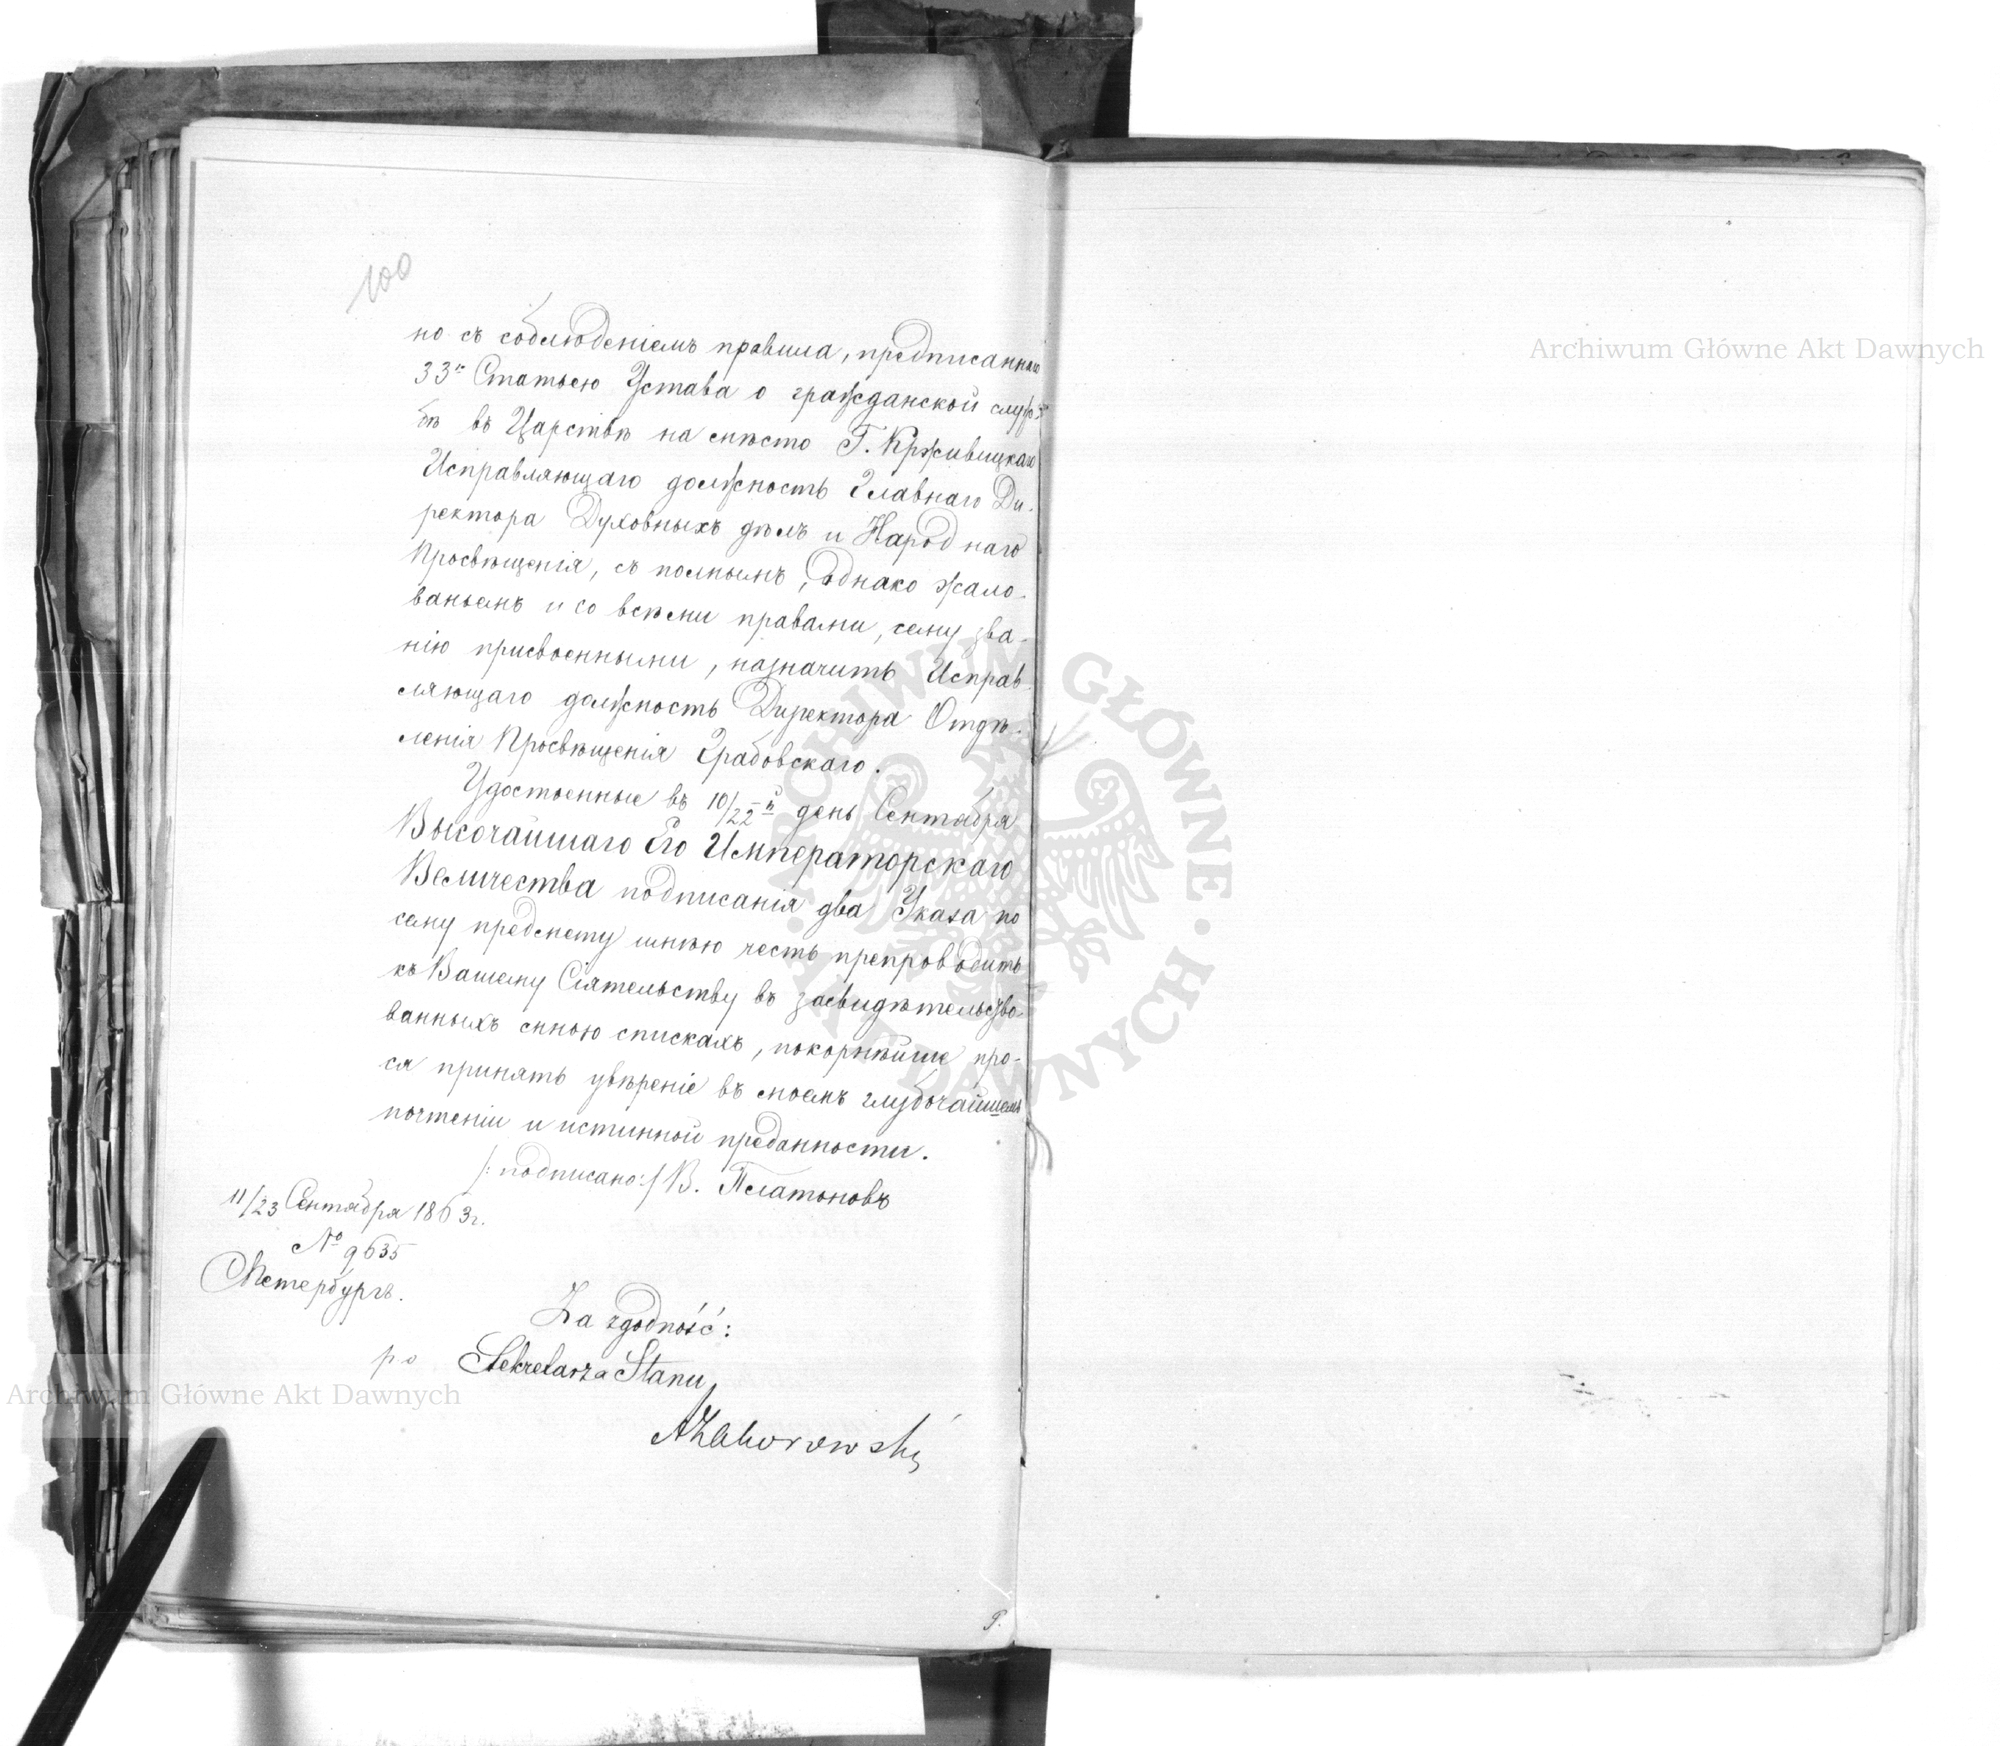 100
но съ соблюденіемъ правила, предписаннаго
33й Статьею Устава о гражданской служ-
бѣ въ Царствѣ на мѣсто Г. Крживицкаго
Исправляющаго должность Главнаго Ди-
ректора Духовныхъ дѣлъ и Народнаго
Просвѣщенія, съ полнымъ, однако жало-
ваньемъ и со всѣми правами, сему зва-
нію присвоенными, назначить Исправ-
ляющаго должность Директора Отдѣ-
ленія Просвѣщенія Грабовскаго.
Удостоенные въ 10/22й день Сентября
Высочайшаго Его Императорскаго
Величества подписанія два Указа по
сему предмету имѣю честь препроводить
къ Вашему Сіятельству въ засвидѣтельство-
ванныхъ мною спискахъ, покорнѣйше про-
ся принять увѣреніе въ моемъ глубочайшемъ
почтеніи и истинной преданности.
/: подписано:/ В. Платоновъ
11/23 Сентября 1863 г.
№ 9635
СПетербургъ.
Za zgodność:
po Sekretarza Stanu
AZaborowski
Archiwum Główne Akt Dawnych
Archiwum Główne Akt Dawnych
ARCHIWUM GŁÓWNE · AKT DAWNYCH ·